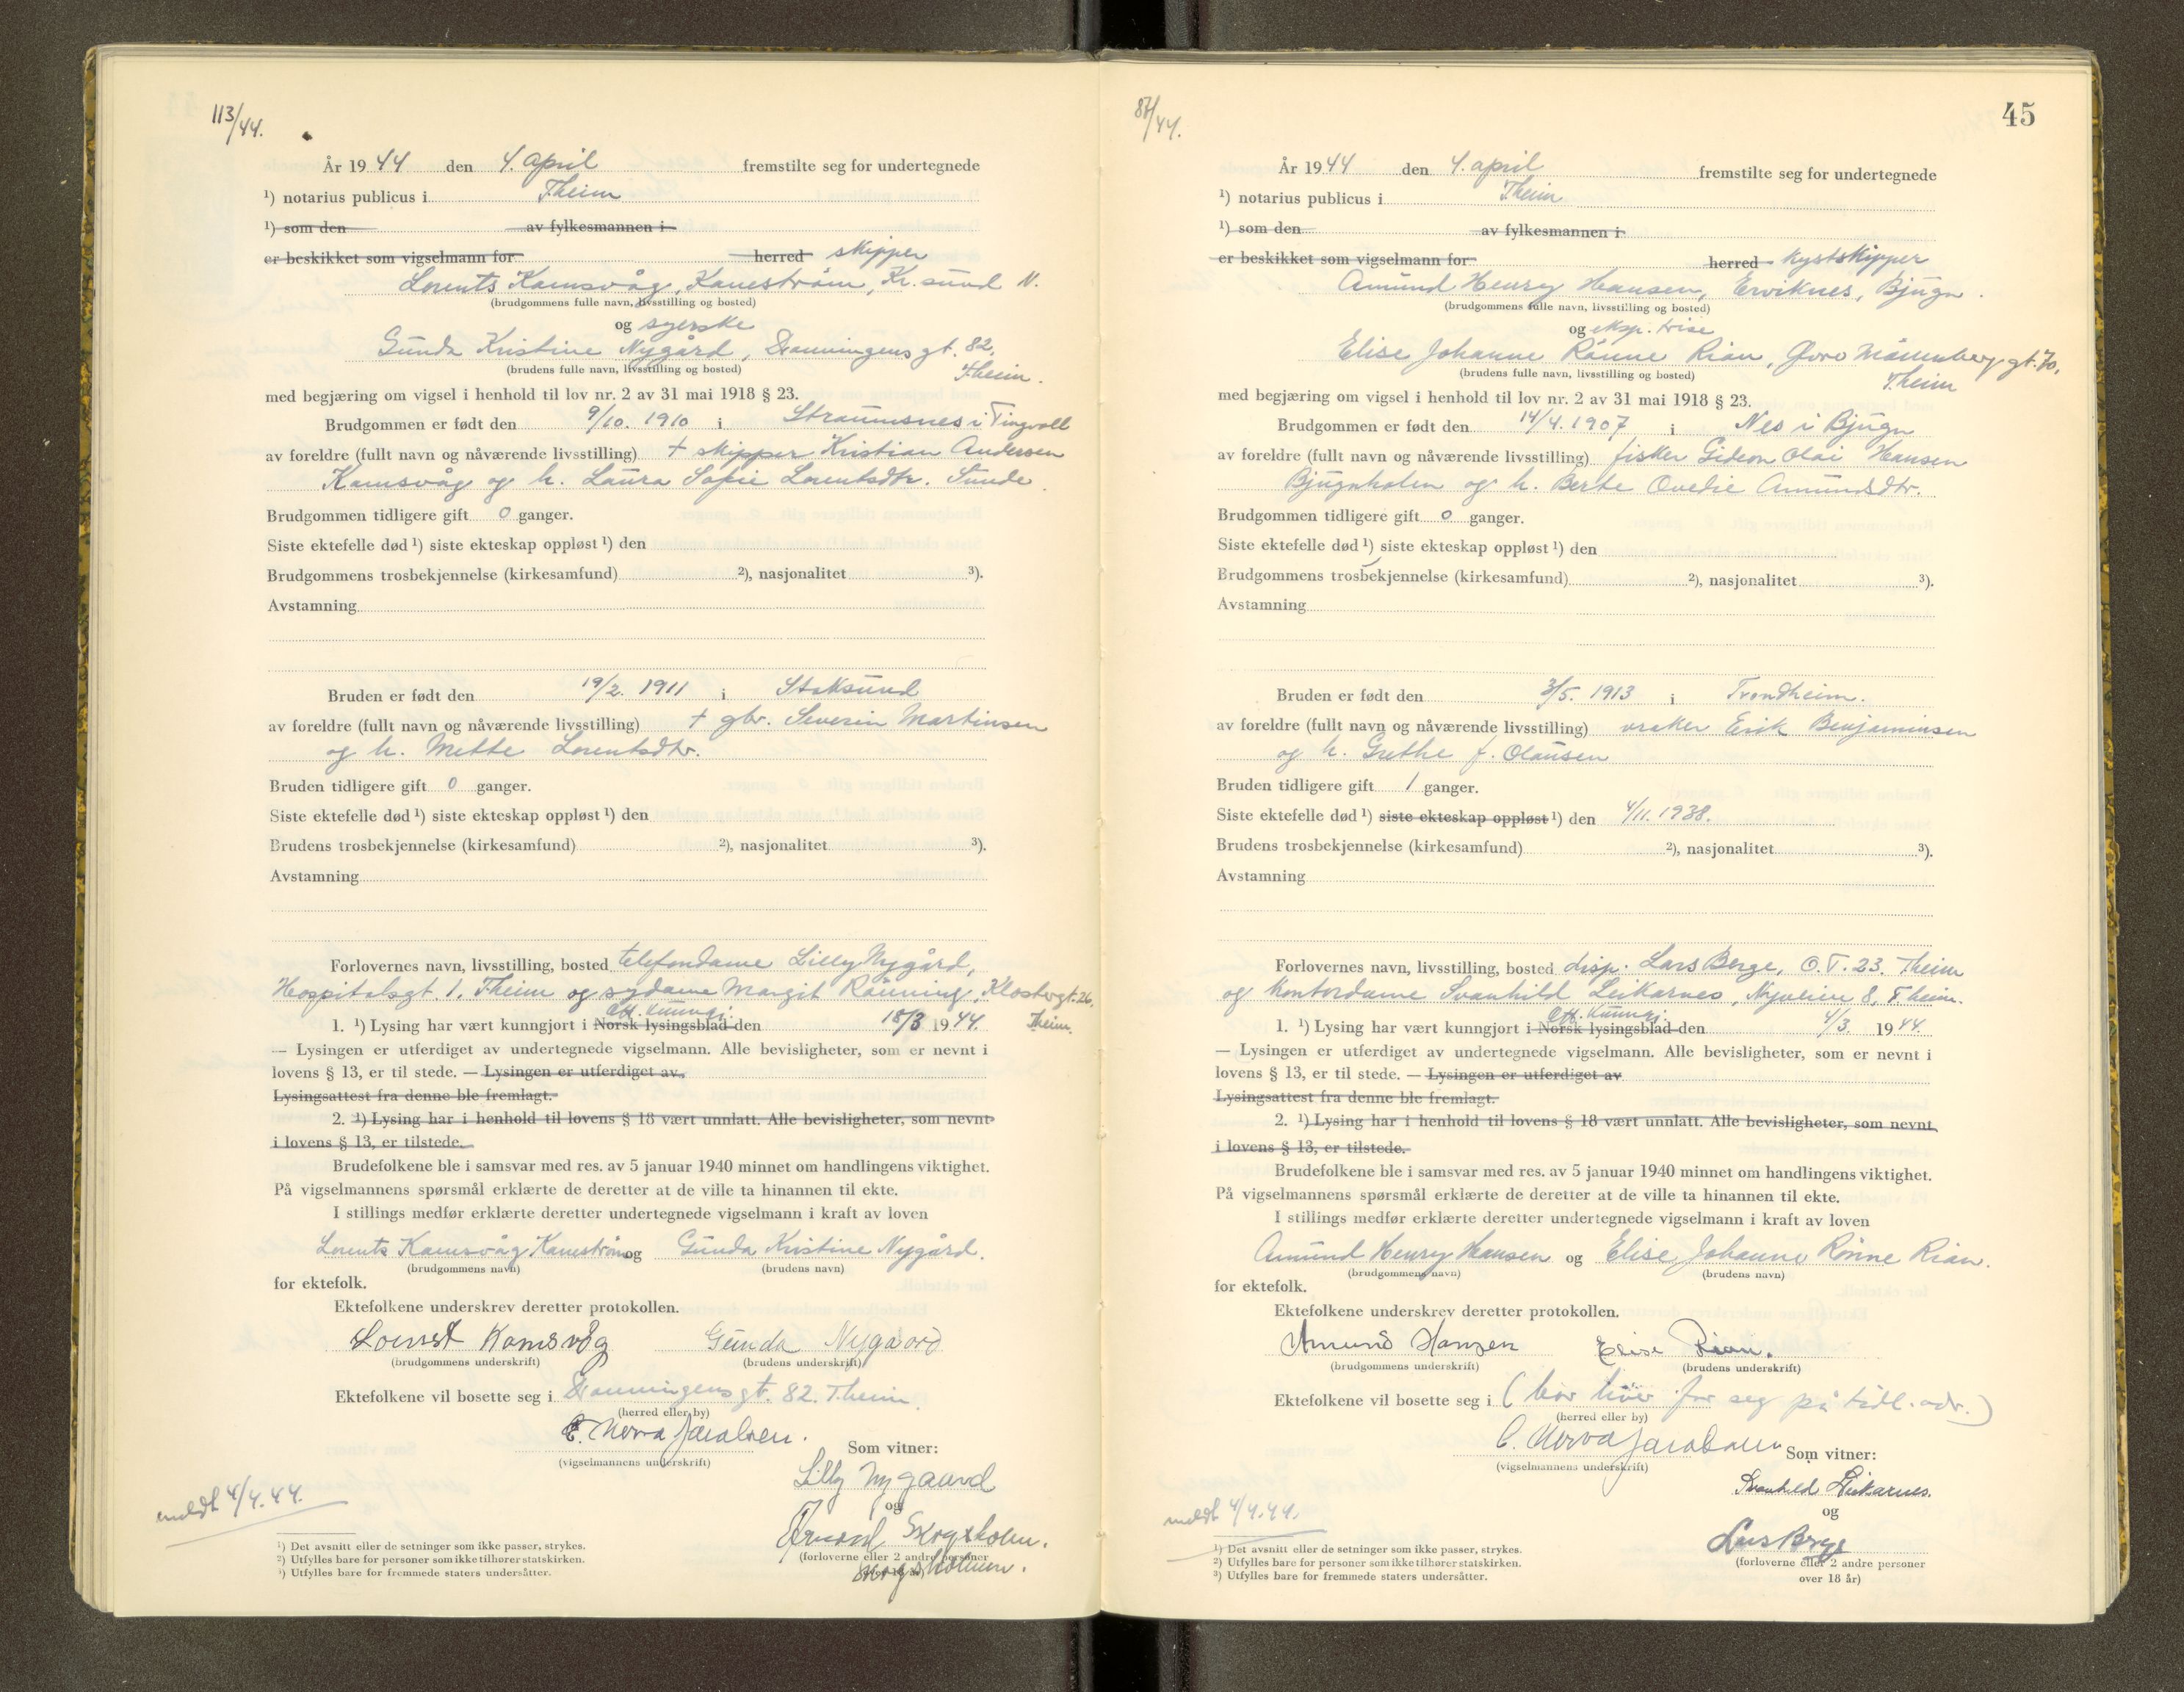 113/44.
År 1944 den 4. april fremstilte seg for undertegnede
¹) notarius publicus i T.heim
¹) som den av fylkesmannen i
er beskikket som vigselmann for herred skipper
Lorents Kamsvåg, Kanestrøm, Kr.sund N.
(brudgommens fulle navn, livsstilling og bosted)
og syerske
Gunda Kristine Nygård, Dronningens gt. 82,
(brudens fulle navn, livsstilling og bosted)
T.heim.
med begjæring om vigsel i henhold til lov nr. 2 av 31 mai 1918 § 23.
Brudgommen er født den 9/10. 1910 i Straumsnes i Tingvoll
av foreldre (fullt navn og nåværende livsstilling) + skipper Kristian Andersen
Kamsvåg og h. Laura Sofie Lorentsdtr. Sunde.
Brudgommen tidligere gift 0 ganger.
Siste ektefelle død ¹) siste ekteskap oppløst ¹) den
Brudgommens trosbekjennelse (kirkesamfund) ²), nasjonalitet ³).
Avstamning
Bruden er født den 19/2. 1911 i Stoksund
av foreldre (fullt navn og nåværende livsstilling) + gbr. Severin Martinsen
og h. Mette Lorentsdtr.
Bruden tidligere gift 0 ganger.
Siste ektefelle død ¹) siste ekteskap oppløst ¹) den
Brudens trosbekjennelse (kirkesamfund) ²), nasjonalitet ³).
Avstamning
Forlovernes navn, livsstilling, bosted telefondame Lilly Nygård,
Hospitalsgt. 1. T.heim og sydame Margit Rönning, Klostergt. 26,
T.heim.
Off. kunngj.
1. ¹) Lysing har vært kunngjort i Norsk lysingsblad den 18/3 1944.
— Lysingen er utferdiget av undertegnede vigselmann. Alle bevisligheter, som er nevnt i
lovens § 13, er til stede. — Lysingen er utferdiget av
Lysingsattest fra denne ble fremlagt.
2. ¹) Lysing har i henhold til lovens § 18 vært unnlatt. Alle bevisligheter, som nevnt
i lovens § 13, er tilstede.
Brudefolkene ble i samsvar med res. av 5 januar 1940 minnet om handlingens viktighet.
På vigselmannens spørsmål erklærte de deretter at de ville ta hinannen til ekte.
I stillings medfør erklærte deretter undertegnede vigselmann i kraft av loven
Lorents Kamsvåg Kanestrøm og Gunda Kristine Nygård.
(brudgommens navn) (brudens navn)
for ektefolk.
Ektefolkene underskrev deretter protokollen.
Kamsvåg Gunda Nygaard
(brudgommens underskrift) (brudens underskrift)
Ektefolkene vil bosette seg i Dronningens gt. 82. T.heim.
(herred eller by)
Jacobsen.
(vigselmannens underskrift)
Som vitner:
Lilly Nygaard
og
Skogsholm.
(forloverne eller 2 andre personer
over 18 år)
Skogsholmen.
meldt 4/4.44.
¹) Det avsnitt eller de setninger som ikke passer, strykes.
²) Utfylles bare for personer som ikke tilhører statskirken.
³) Utfylles bare for fremmede staters undersåtter.
87/44.
45
År 1944 den 4. april fremstilte seg for undertegnede
¹) notarius publicus i T.heim
¹) som den av fylkesmannen i
er beskikket som vigselmann for herred kystskipper
Amund Henry Hansen, Erviknes, Bjugn.
(brudgommens fulle navn, livsstilling og bosted)
og eksp. trise
Elise Johanne Rönne Rian, Øvre Möllenberg gt. 70,
(brudens fulle navn, livsstilling og bosted)
T.heim
med begjæring om vigsel i henhold til lov nr. 2 av 31 mai 1918 § 23.
Brudgommen er født den 14/4. 1907 i Nes i Bjugn
av foreldre (fullt navn og nåværende livsstilling) fisker Gideon Olai Hansen
Bjugnholen og h. Berte Ovedie Amundsdtr.
Brudgommen tidligere gift 0 ganger.
Siste ektefelle død ¹) siste ekteskap oppløst ¹) den
Brudgommens trosbekjennelse (kirkesamfund) ²), nasjonalitet ³).
Avstamning
Bruden er født den 3/5. 1913 i Trondheim.
av foreldre (fullt navn og nåværende livsstilling) vraker Erik Benjaminsen
og h. Grethe f. Olausen
Bruden tidligere gift 1 ganger.
Siste ektefelle død ¹) siste ekteskap oppløst ¹) den 4/11. 1938.
Brudens trosbekjennelse (kirkesamfund) ²), nasjonalitet ³).
Avstamning
Forlovernes navn, livsstilling, bosted disp. Lars Berge, O.T. 23. T.heim
og kontordame Svanhild Leikarnes, Nyveien 8, T.heim.
Off. kunngj.
1. ¹) Lysing har vært kunngjort i Norsk lysingsblad den 4/3. 1944.
— Lysingen er utferdiget av undertegnede vigselmann. Alle bevisligheter, som er nevnt i
lovens § 13, er til stede. — Lysingen er utferdiget av
Lysingsattest fra denne ble fremlagt.
2. ¹) Lysing har i henhold til lovens § 18 vært unnlatt. Alle bevisligheter, som nevnt
i lovens § 13, er tilstede.
Brudefolkene ble i samsvar med res. av 5 januar 1940 minnet om handlingens viktighet.
På vigselmannens spørsmål erklærte de deretter at de ville ta hinannen til ekte.
I stillings medfør erklærte deretter undertegnede vigselmann i kraft av loven
Amund Henry Hansen og Elise Johanne Rönne Rian.
(brudgommens navn) (brudens navn)
for ektefolk.
Ektefolkene underskrev deretter protokollen.
Amund Hansen Elise Rian.
(brudgommens underskrift) (brudens underskrift)
Ektefolkene vil bosette seg i (bor hver for seg på tidl. adr.)
(herred eller by)
Jacobsen
(vigselmannens underskrift)
Som vitner:
Svanhild Leikarnes.
og
Lars Berge
(forloverne eller 2 andre personer
over 18 år)
meldt 4/4.44.
¹) Det avsnitt eller de setninger som ikke passer, strykes.
²) Utfylles bare for personer som ikke tilhører statskirken.
³) Utfylles bare for fremmede staters undersåtter.